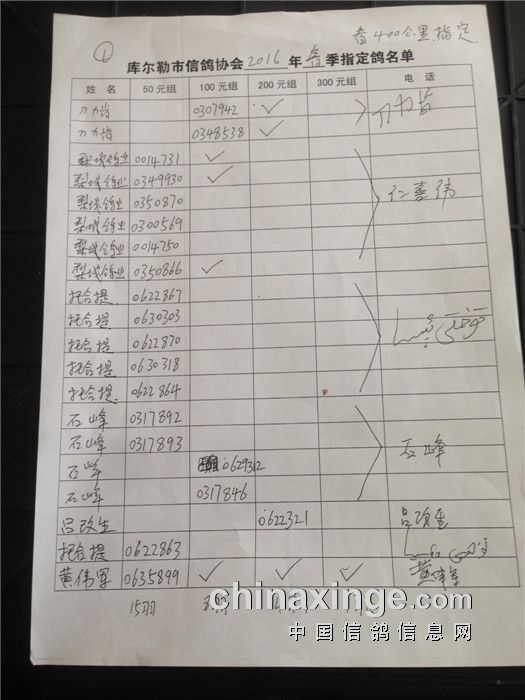 ① 春400公里指定
库尔勒市信鸽协会2016年春季指定鸽名单
姓 名 50元组 100元组 200元组 300元组 电 话
0307942 ✓
0348538 ✓
梨城鸽业 0014731 ✓
梨城鸽业 0349930 ✓
梨城鸽业 0350870
梨城鸽业 0300569
梨城鸽业 0014750
梨城鸽业 0350866 ✓
托合提 0622867
托合提 0630303
托合提 0622870
托合提 0630318
托合提 0622864
石峰 0317892
石峰 0317893 石峰
石峰 0629312
石峰 0317846
吕改生 0622321 吕改生
托合提 0622863
黄伟军 0635899 ✓ ✓ ✓ 黄伟军
15羽
chinaxinge.com
中国信鸽信息网